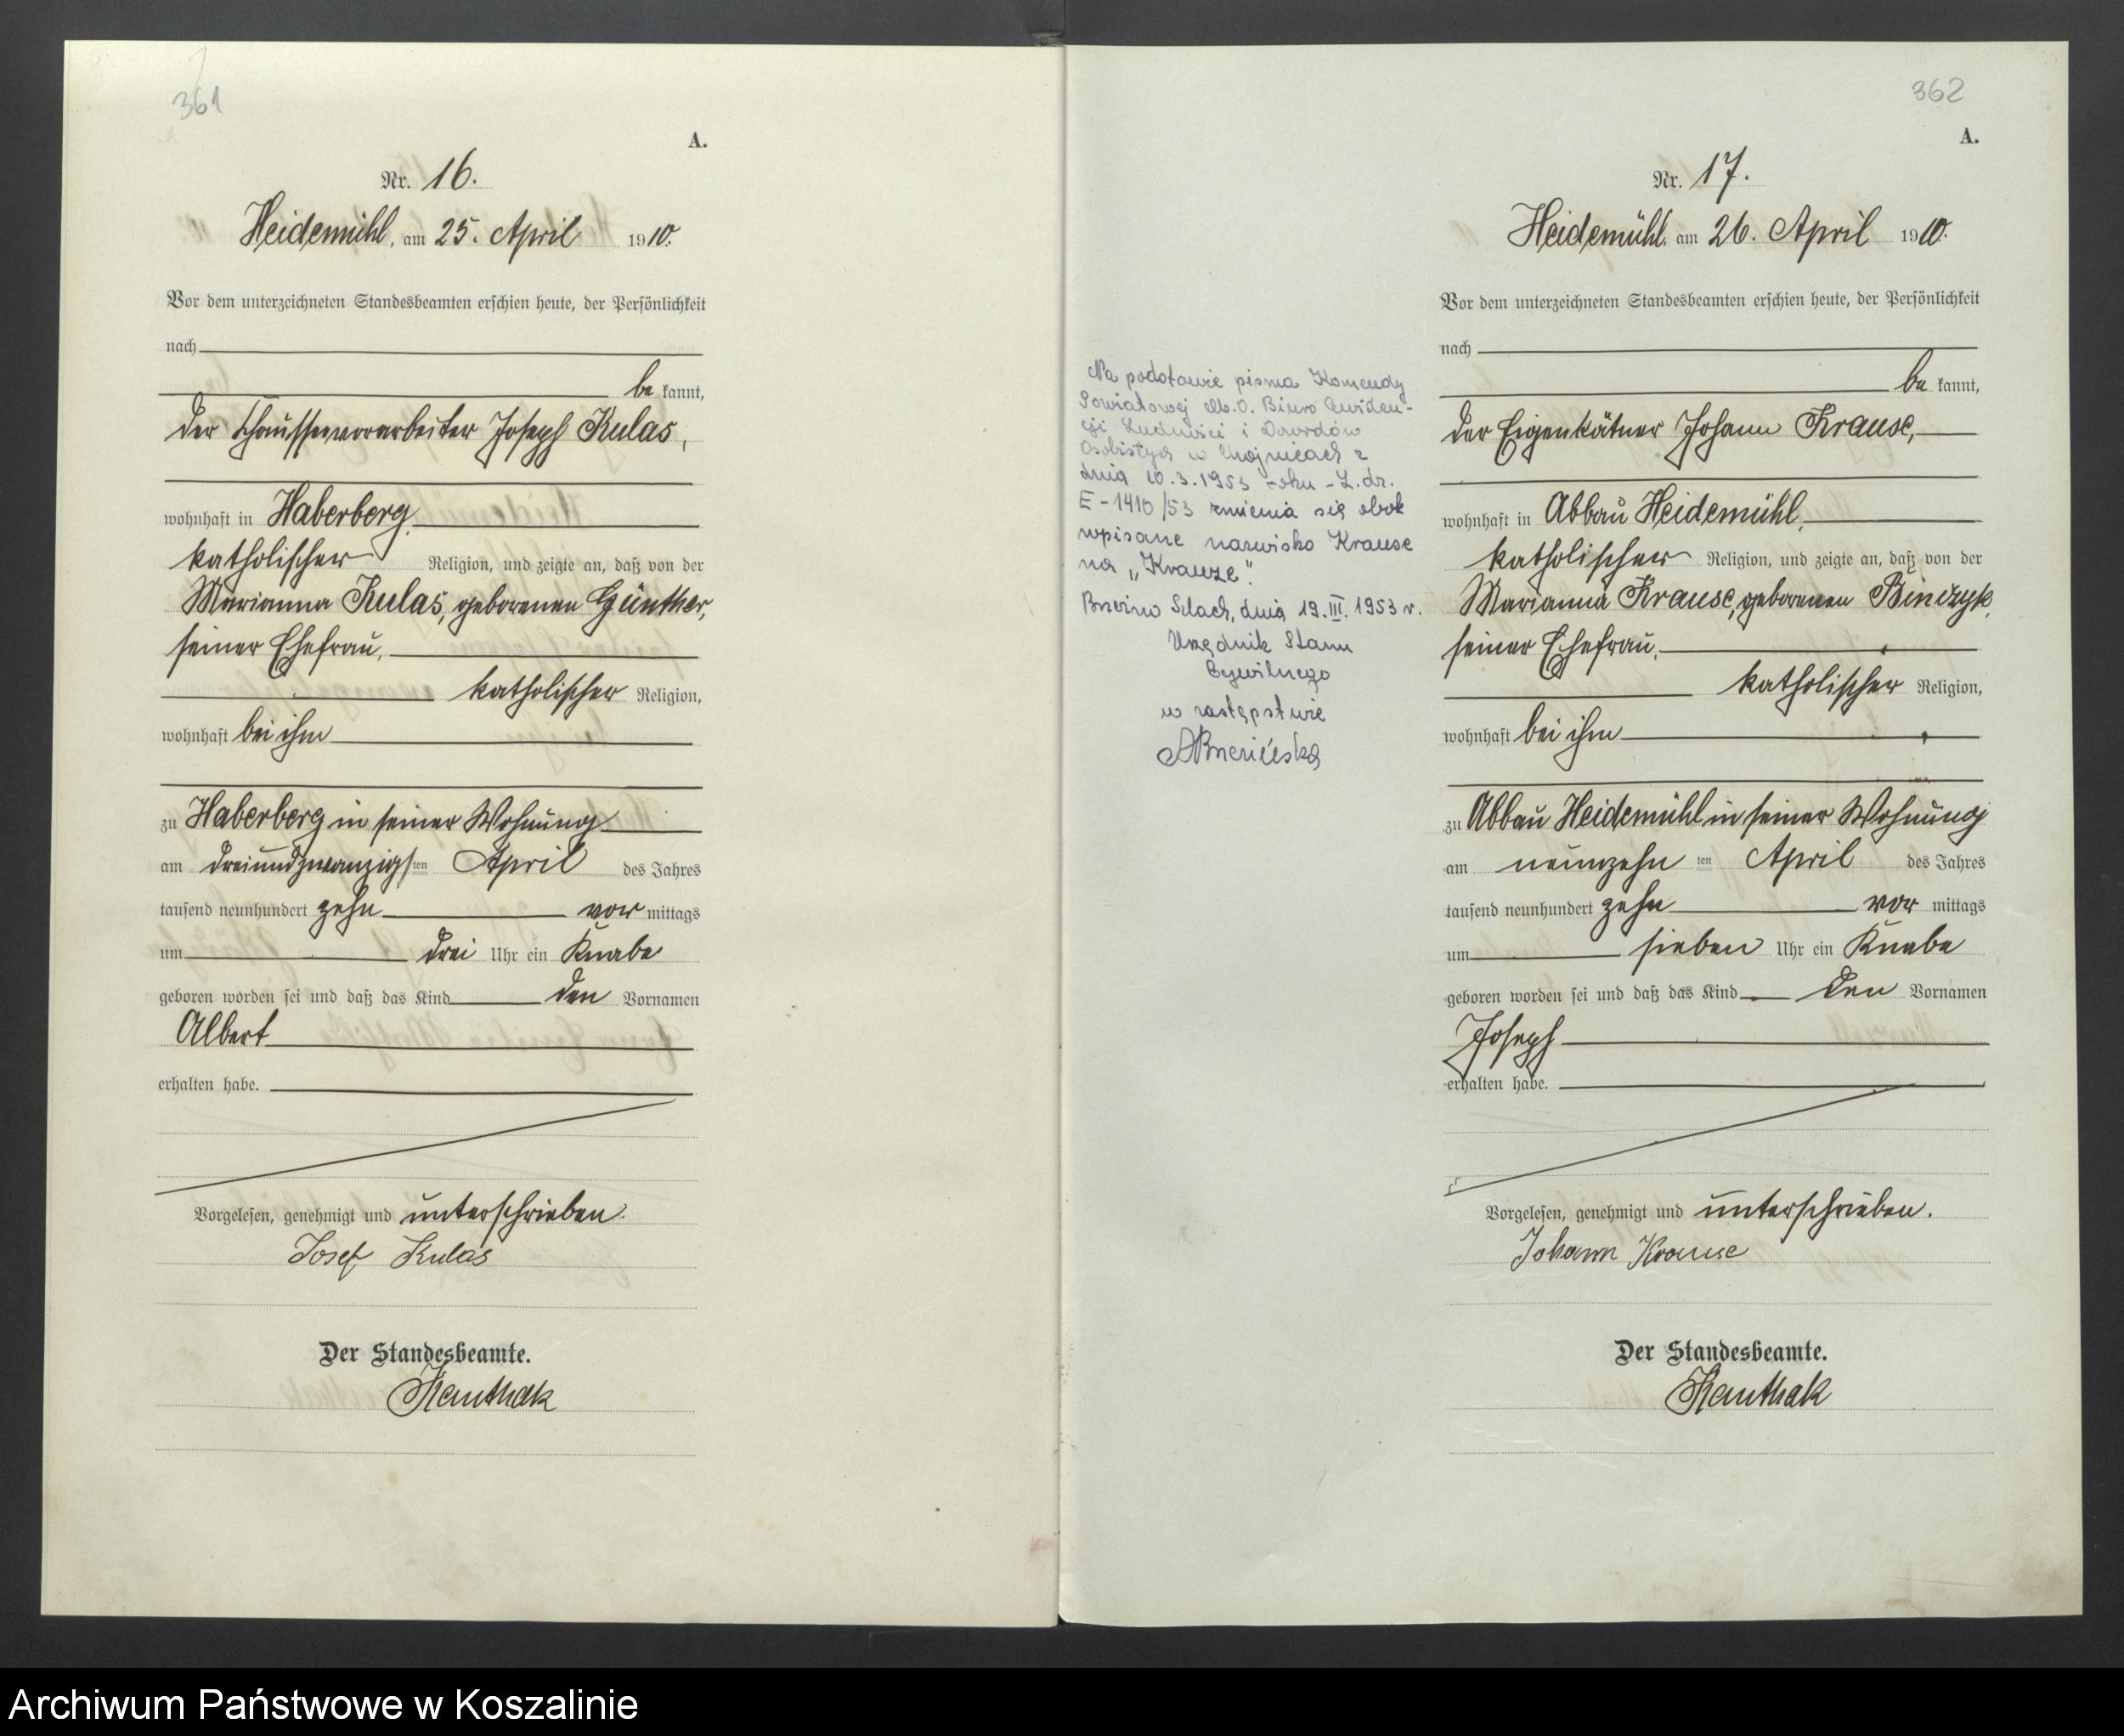 361
A.
Nr. 16.
Heidemühl, am 25. April 1910.
Vor dem unterzeichneten Standesbeamten erschien heute, der Persönlichkeit
nach
be kannt,
der Chausseevorarbeiter Joseph Kulas,
wohnhaft in Haberberg,
katholischer Religion, und zeigte an, daß von der
Marianna Kulas, geborenen Günther,
seiner Ehefrau,
katholischer Religion,
wohnhaft bei ihm
zu Haberberg in seiner Wohnung
am dreiundzwanzigsten April des Jahres
tausend neunhundert zehn vor mittags
um drei Uhr ein Knabe
geboren worden sei und daß das Kind den Vornamen
Albert
erhalten habe.
Vorgelesen, genehmigt und unterschrieben.
Josef Kulas
Der Standesbeamte.
362
A.
Nr. 17.
Heidemühl, am 26. April 1910.
Vor dem unterzeichneten Standesbeamten erschien heute, der Persönlichkeit
nach
be kannt,
der Eigenkätner Johann Krause,
wohnhaft in Abbau Heidemühl,
katholischer Religion, und zeigte an, daß von der
Marianna Krause, geborenen Binczyk,
seiner Ehefrau,
katholischer Religion,
wohnhaft bei ihm
zu Abbau Heidemühl in seiner Wohnung
am neunzehn ten April des Jahres
tausend neunhundert zehn vor mittags
um sieben Uhr ein Knabe
geboren worden sei und daß das Kind den Vornamen
Joseph
erhalten habe.
Vorgelesen, genehmigt und unterschrieben.
Johann Krause
Der Standesbeamte.
Na podstawie pisma Komendy
Powiatowej M.O. Biuro Ewiden-
cji Ludności i Dowodów
Osobistych w Chojnicach z
dnia 10.3.1953 roku - L.dz.
E-1410/53 zmienia się obok
wpisane nazwisko Krause
na „Krauze".
dnia 19.III.1953 r.
Urzędnik Stanu
Cywilnego
w zastępstwie
Archiwum Państwowe w Koszalinie